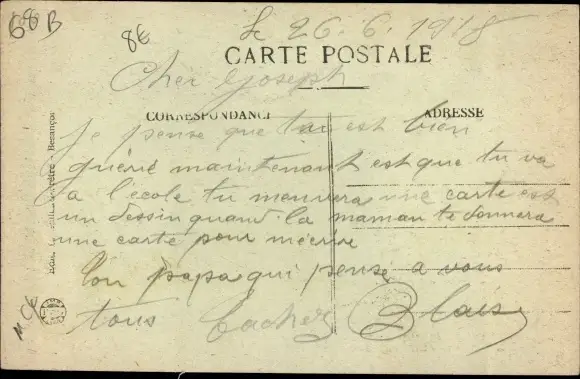 68B
8€
Le 26.6.1918
CARTE POSTALE
Cher Joseph
CORRESPONDANCE
ADRESSE
je pense que tu est bien
guérié maintenant est que tu va
a l'école tu menvera une carte est
un dessin quand la maman te donnera
une carte pour mécrire
Ton papa qui pense a vous
tous Blais
Besançon